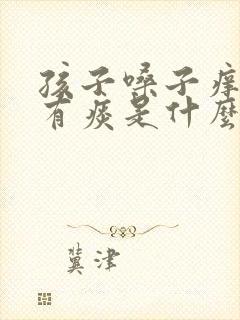 孩子嗓子痒
有痰是什麼
冀津